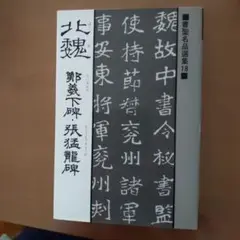 ■書聖名品選集18
魏故中書令秘書監
使持節督兖州諸軍
事安東將軍兖州刺
北魏
鄭羲下碑・張猛龍碑